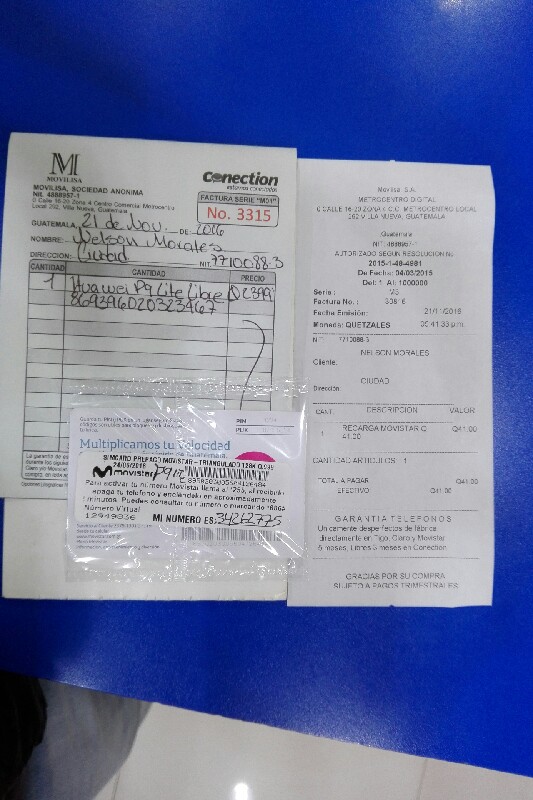 M
MOVILISA
MOVILISA, SOCIEDAD ANONIMA
Nit. 4888957-1
0 Calle 16-20 Zona 4 Centro Comercial Metrocentro
Local 262, Villa Nueva, Guatemala
Conection
FACTURA SERIE "M01"
No. 3315
GUATEMALA, 21 de Nov. DE 2016
NOMBRE: Nelson Morales
DIRECCION: Ciudad NIT: 7710088-3
CANTIDAD CANTIDAD PRECIO
1 Huawei P9 Lite Libre Q2399
869396020323467
Multiplicamos tu Velocidad
SIMCARD PREPAGO MOVISTAR - TRIANGULADO 128K
24/05/2016
movistar P9 lt
Para activar tu número Movistar llama al *255, al recibirlo
apaga tu teléfono y enciéndelo en aproximadamente
Puedes consultar tu número
Número Virtual
12949836 MI NUMERO ES: 34262775
Movilisa S.A.
METROCENTRO DIGITAL
0 CALLE 16-20 ZONA 4 C.C. METROCENTRO LOCAL
262 VILLA NUEVA, GUATEMALA
Guatemala
NIT: 4888957-1
AUTORIZADO SEGUN RESOLUCION No.
2015-1-48-4981
De Fecha: 04/03/2015
Del: 1 Al: 1000000
Serie :
Factura No.: 30816
Fecha Emisión: 21/11/2016
Moneda: QUETZALES 05:41:33 p.m.
NIT: 7710088-3
NELSON MORALES
Cliente:
CIUDAD
Dirección:
CANT. DESCRIPCION VALOR
1 RECARGA MOVISTAR Q Q41.00
41.00
CANTIDAD ARTICULOS : 1
TOTAL A PAGAR Q41.00
EFECTIVO Q41.00
GARANTIA TELEFONOS
Unicamente despefectos de fábrica
directamente en Tigo, Claro y Movistar
6 meses, Libres 3 meses en Conection
GRACIAS POR SU COMPRA
SUJETO A PAGOS TRIMESTRALES